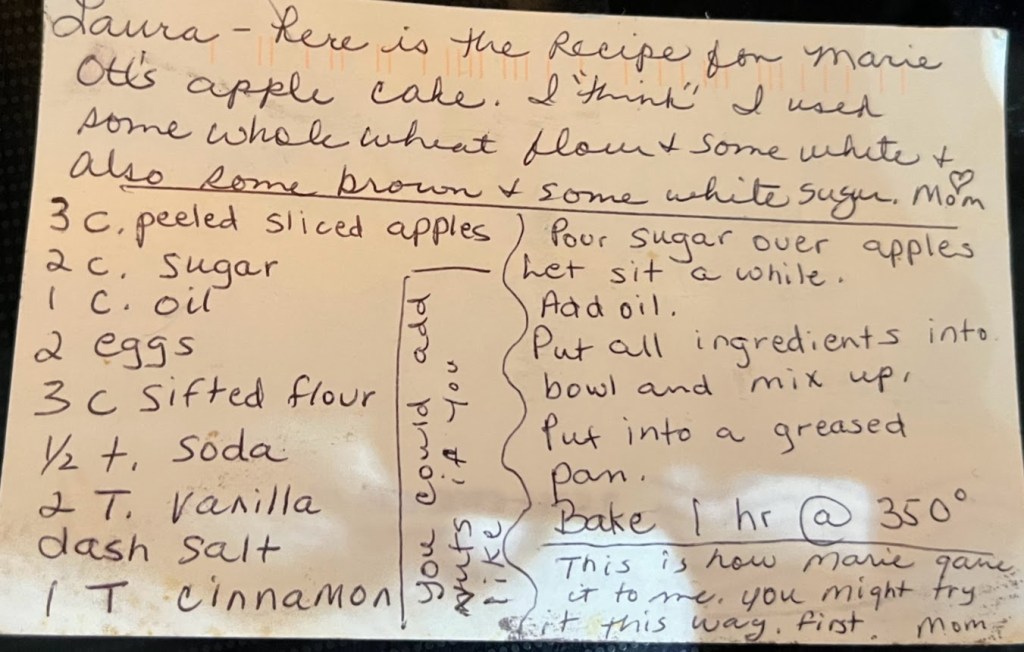 Laura - here is the Recipe for Marie
Ott's apple cake. I "think" I used
some whole wheat flour & some white &
also some brown & some white sugar. Mom
3 c. peeled sliced apples
2 c. sugar
1 c. oil
2 eggs
3 c sifted flour
1/2 t. soda
2 T. vanilla
dash salt
1 T cinnamon
you could add
nuts if you
like
Pour sugar over apples
Let sit a while.
Add oil.
Put all ingredients into
bowl and mix up.
Put into a greased
pan.
Bake 1 hr @ 350°
This is how Marie gave
it to me. you might try
it this way. first. Mom